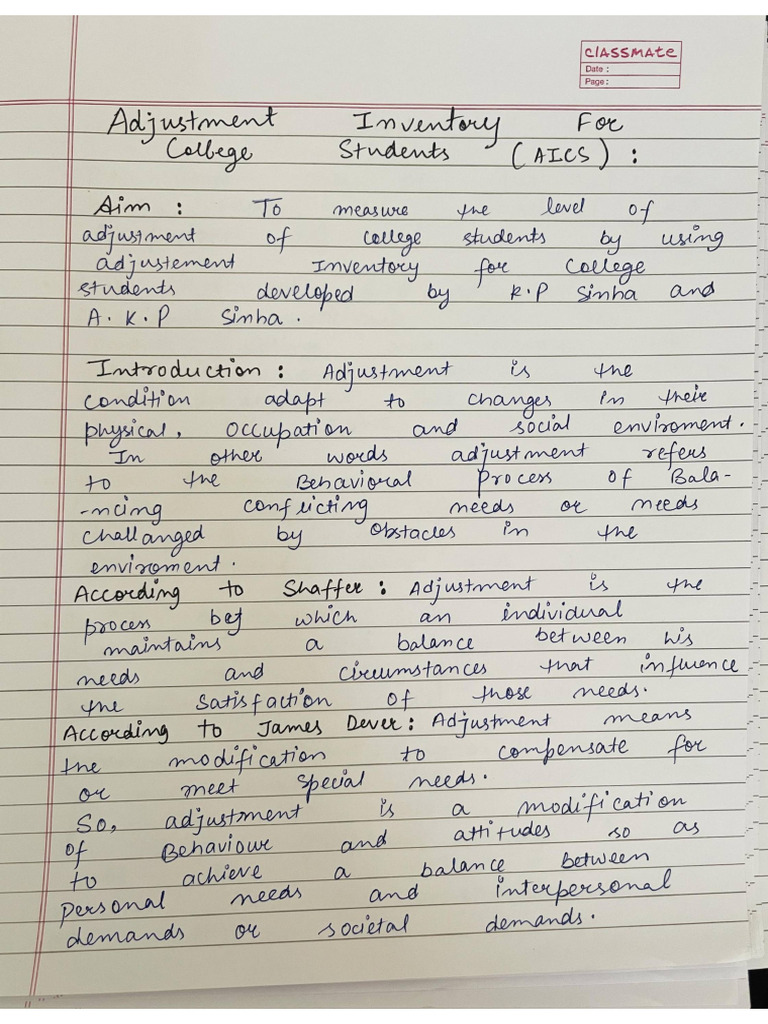 CLASSMATE
Date :
Page :
Adjustment Inventory For
College Students (AICS) :
Aim : To measure the level of
adjustment of college students by using
adjustement Inventory for College
students developed by R.P Sinha and
A.K.P Sinha.
Introduction : Adjustment is the
condition adapt to changes in their
physical, occupation and social enviroment.
In other words adjustment refers
to the Behavioral Process of Bala-
-ncing conflicting needs or needs
challanged by obstacles in the
enviroment.
According to Shaffer : Adjustment is the
process by which an individual
maintains a balance between his
needs and circumstances that influence
the satisfaction of those needs.
According to James Dever : Adjustment means
the modification to compensate for
or meet special needs.
So, adjustment is a modification
of Behaviour and attitudes so as
to achieve a balance between
personal needs and interpersonal
demands or societal demands.